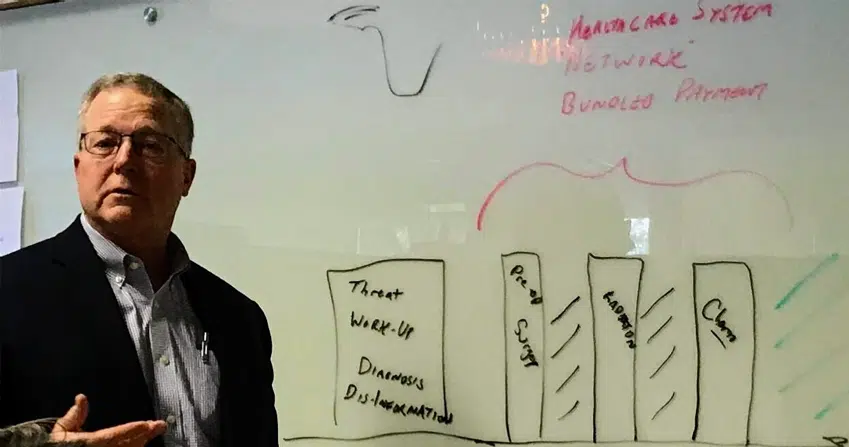 HEALTHCARE SYSTEM
"NETWORK"
BUNDLED PAYMENT
Threat
WORK-UP
DIAGNOSIS
DIS-INFORMATION
Pre-op
Surgery
RADIATION
Chem